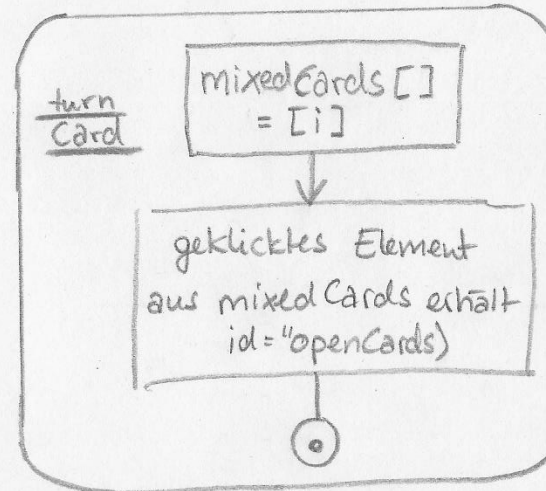 turn
Card
mixedCards []
= [i]
geklicktes Element
aus mixedCards erhält
id="openCards)